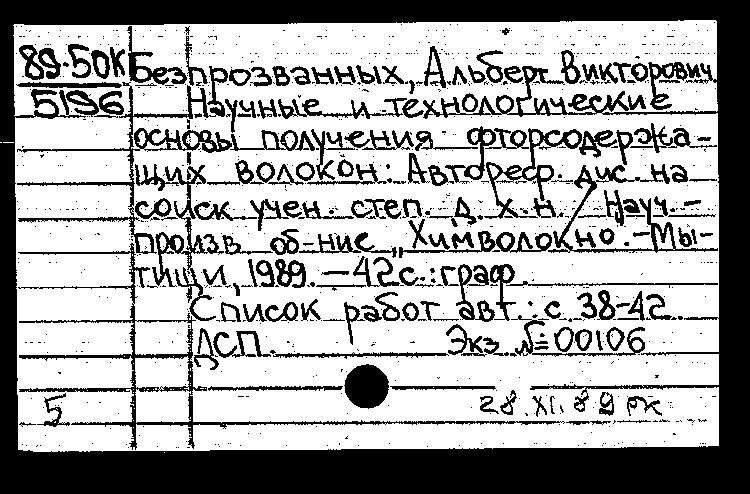 89-50К Безпрозванных, Альберт Викторович.
5196 Научные и технологические
основы получения фторсодержа-
щих волокон: Автореф. дис. на
соиск учен. степ. д. х. н. / Науч.-
произв об-ние „Химволокно. - Мы-
тищи, 1989. - 42 с.: граф.
Список работ авт.: с 38-42.
ДСП. Экз № 00106
5 28.XI.89 рк